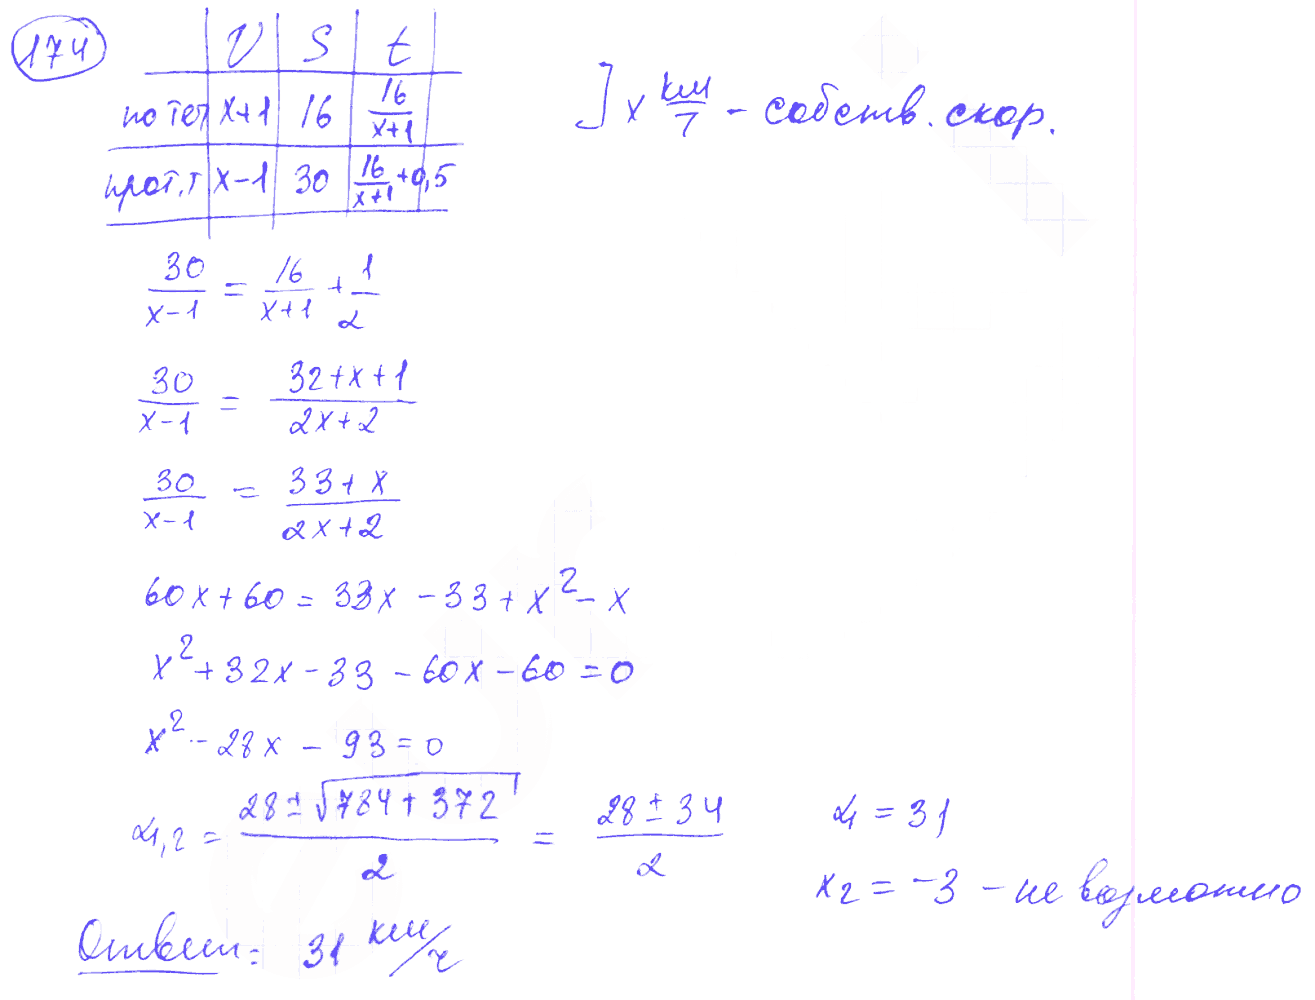 174
V S t
по теч x+1 16 16/(x+1)
прот.т x-1 30 16/(x+1)+0,5
] x км/ч - собств. скор.
30/(x-1) = 16/(x+1) + 1/2
30/(x-1) = (32+x+1)/(2x+2)
30/(x-1) = (33+x)/(2x+2)
60x+60=33x-33+x²-x
x²+32x-33-60x-60=0
x²-28x-93=0
x1,2 = (28±√(784+372))/2 = (28±34)/2
x1=31
x2=-3 - не возможно
Ответ: 31 км/ч